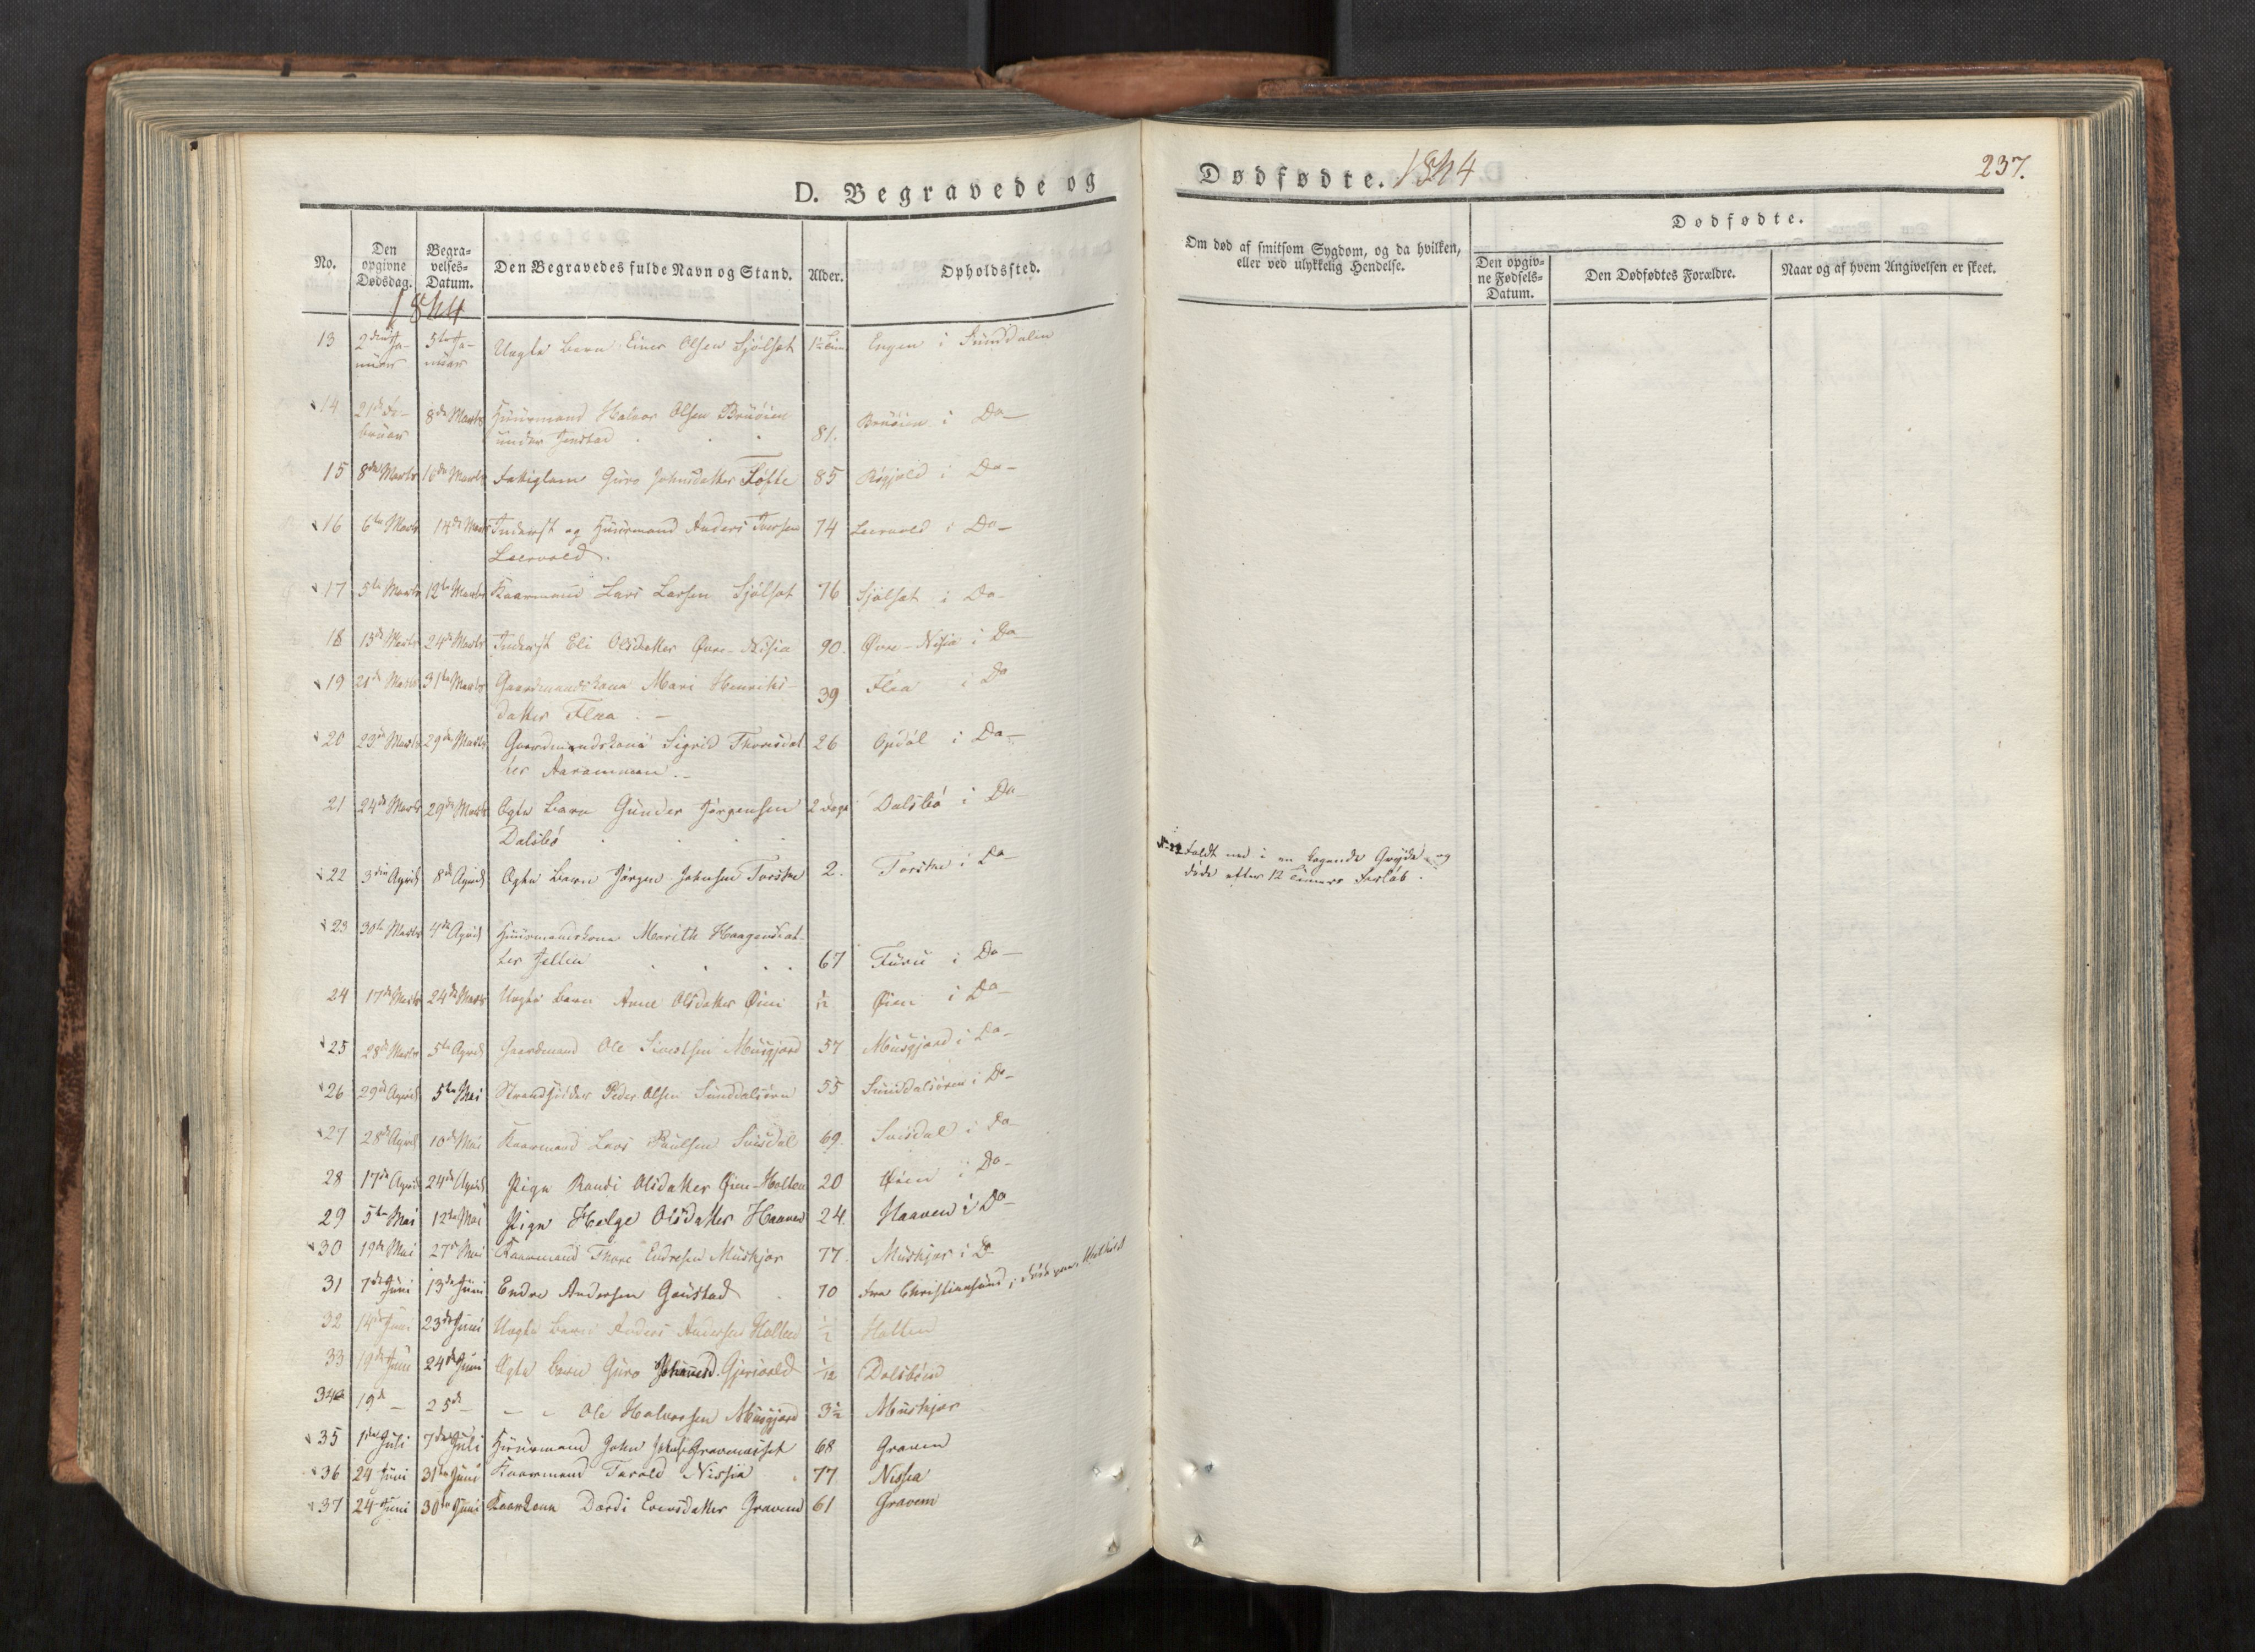 D. Begravede og
No.
Den opgivne Dødsdag.
Begravelses-Datum.
Den Begravedes fulde Navn og Stand.
Alder.
Opholdssted.
1844
13 2den Januar 5te Januar Uægte Barn Einer Olsen Sjølset Engen i Sunddalen
14 21de Februar 8de Marts Huusmand Halvor Olsen Bruøien
under Jenstad 81. Bruøien i Do
15 8de Marts 16de Marts Fattiglem Guro Johnsdatter Tøfte 85 i Do
16 6te Marts 14de Marts Inderst og Huusmand Anders Iversen 74 Leervold i Do
Leervold.
17 5te Marts 12te Marts Kaarmand Lars Larsen Sjølset 76 Sjølset i Do
18 13de Marts 24de Marts Inderst Eli Olsdatter Øvre-Nisia 90. Øvre-Nisia i Do
19 21de Marts 31te Marts Gaardmandskone Mari Henriks-
datter Flaa 39 Flaa i Do
20 23de Marts 29de Marts Gaardmandskone Sigrid Thoresdat 26 Opdøl i Do
ter Aarammen.
21 24de Marts 29de Marts Ægte Barn Gunder Jørgensen 2 Dage Dalsbø i Do
Dalsbø
22 3die April 8de April Ægte Barn Jørgen Johnsen Torske 2. Torske i Do
23 30te Marts 4de April Huusmandskone Marith Haagensdat-
ter Jellien 67 Furu i Do
24 17de Marts 24de Marts Uægte Barn Anne Olsdatter Øien 1/12 Øien i Do
25 28de Marts 5te April Gaardmand Ole Sivertsen Musgjerd 57 Musgjerd i Do
26 29de April 5te Mai Strandsidder Peder Olsen Sunddalsøren 55 Sunddalsøren i Do
27 28de April 10de Mai Kaarmand Lars Paulsen Svisdal 69. Svisdal i Do
28 17de April 24de April Pige Randi Olsdatter Øien-Holten 20 Øien i Do
29 5te Mai 12te Mai Pige Helge Olsdatter Haaven 24. Haaven i Do
30 19de Mai 27de Mai Kaarmand Thore Endresen Muskjør 77. Muskjør i Do
31 7de Juni 13de Juni Endre Andersen Gaustad 70 fra Christiansund, døde paa
32 14de Juni 23de Juni Uægte Barn Anders Andersen Holten 1/2 Holten
33 19de Juni 24de Juni Ægte Barn Guro Johannesd. Gjersvold 1/12 Dalsbøen
34 19de 25de - - Ole Halvorsen Musgjerd 3½ Muskjør
35 1ste Juli 7de Juli Huusmand John Johns. Gravemsset 68 Graven
36 24 Juni 31te Juni Kaarmand Tarald Nissia 77 Nissia
37 24 Juni 30te Juni Kaarkone Dordi Eversdatter Gravem 61 Gravem
Dødfødte. 1844
237.
Om død af smitsom Sygdom, og da hvilken,
eller ved ulykkelig Hendelse.
Dødfødte.
Den opgivne Fødsels-Datum.
Den Dødfødtes Forældre.
Naar og af hvem Angivelsen er skeet.
N-22 Faldt ned i en kogende Gryde og
døde efter 12 Timers Forløb.